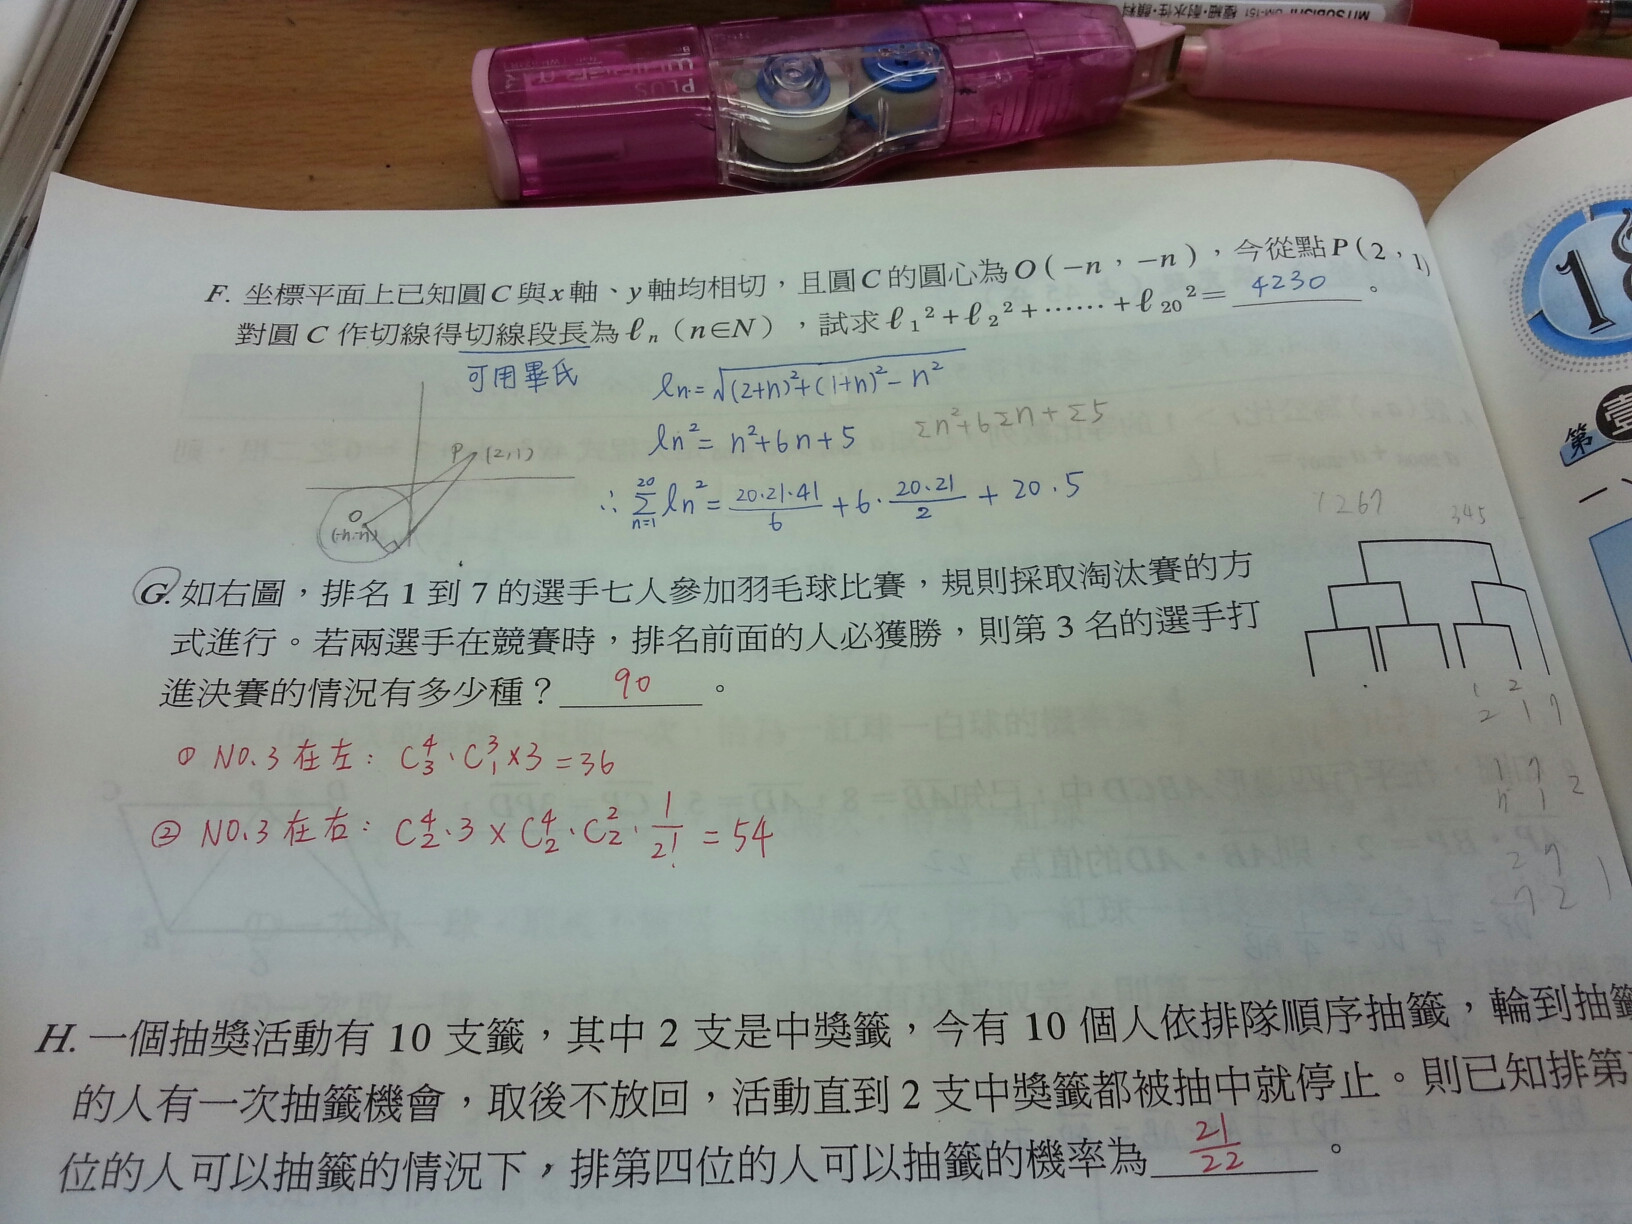 PLUS
MITSUBISHI UM-151 極細・耐水性・顔料
F. 坐標平面上已知圓C與x軸、y軸均相切，且圓C的圓心為O(−n，−n)，今從點P(2，1)
對圓C作切線得切線段長為ℓₙ（n∈N），試求ℓ₁²+ℓ₂²+……+ℓ₂₀²= 4230 。
可用畢氏
ln=√(2+n)²+(1+n)²−n²
ln²= n²+6n+5
Σn²+6Σn+Σ5
P (2,1)
O
(-n,-n)
∴ Σ(n=1→20) ln² = 20·21·41/6 + 6·20·21/2 + 20·5
1267
345
G. 如右圖，排名1到7的選手七人參加羽毛球比賽，規則採取淘汰賽的方
式進行。若兩選手在競賽時，排名前面的人必獲勝，則第3名的選手打
進決賽的情況有多少種？ 90 。
1 2
2 1 7
① NO.3在左：C⁴₃·C³₁×3=36
1 7 2
7 1
② NO.3在右：C⁴₂·3×C⁴₂·C²₂·1/2!=54
2 7
7 2 1
H. 一個抽獎活動有10支籤，其中2支是中獎籤，今有10個人依排隊順序抽籤，輪到抽籤
的人有一次抽籤機會，取後不放回，活動直到2支中獎籤都被抽中就停止。則已知排第
位的人可以抽籤的情況下，排第四位的人可以抽籤的機率為 21/22 。
18
第壹
一、